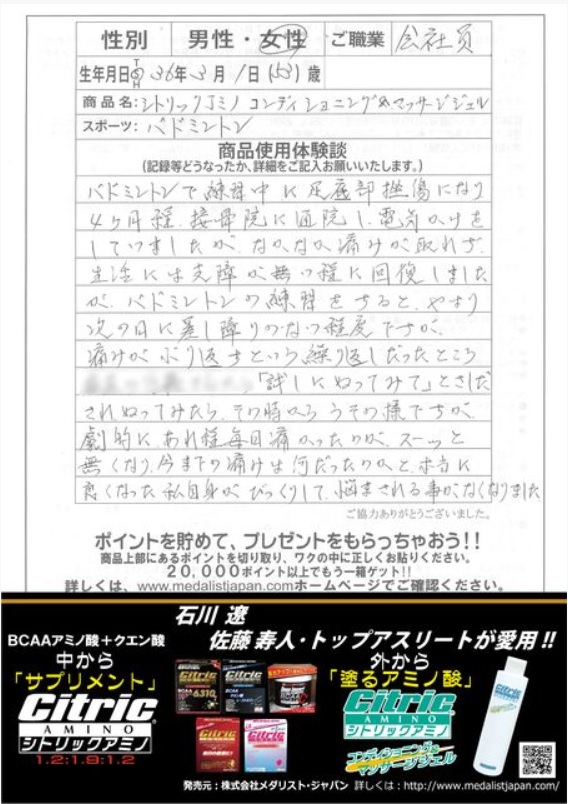 性別 男性・女性 ご職業 会社員
生年月日 36年3月1日(53)歳
商品名:シトリックアミノ コンディショニング&マッサージジェル
スポーツ:バドミントン
商品使用体験談
(記録等どうなったか、詳細をご記入お願いいたします。)
バドミントンで練習中に足底部挫傷になり
4ヶ月程、接骨院に通院し、電気かけを
していましたが、なかなか痛みが取れず、
生活には支障が無い程に回復しました
が、バドミントンの練習をすると、やはり
次の日に差し障りのない程度ですが、
痛みがぶり返すという繰り返しだったところ
「試しにぬってみて」とさしだ
されぬってみたら、その時からうその様ですが、
劇的に、あれ程毎日痛かったのが、スーッと
無くなり、今までの痛みは何だったのかと、本当に
悪くなった私自身がびっくりして、悩まされる事がなくなりました
ご協力ありがとうございました。
ポイントを貯めて、プレゼントをもらっちゃおう!!
商品上部にあるポイントを切り取り、ワクの中に正しくお貼りください。
20,000ポイント以上でもう一箱ゲット!!
詳しくは、www.medalistjapan.comホームページでご確認ください。
石川 遼
佐藤 寿人・トップアスリートが愛用!!
BCAAアミノ酸+クエン酸
中から
「サプリメント」
Citric
AMINO
シトリックアミノ
1.2:1.9:1.2
外から
「塗るアミノ酸」
Citric
AMINO
シトリックアミノ
コンディショニング&
マッサージジェル
発売元:株式会社メダリスト・ジャパン 詳しくは:http://www.medalistjapan.com/